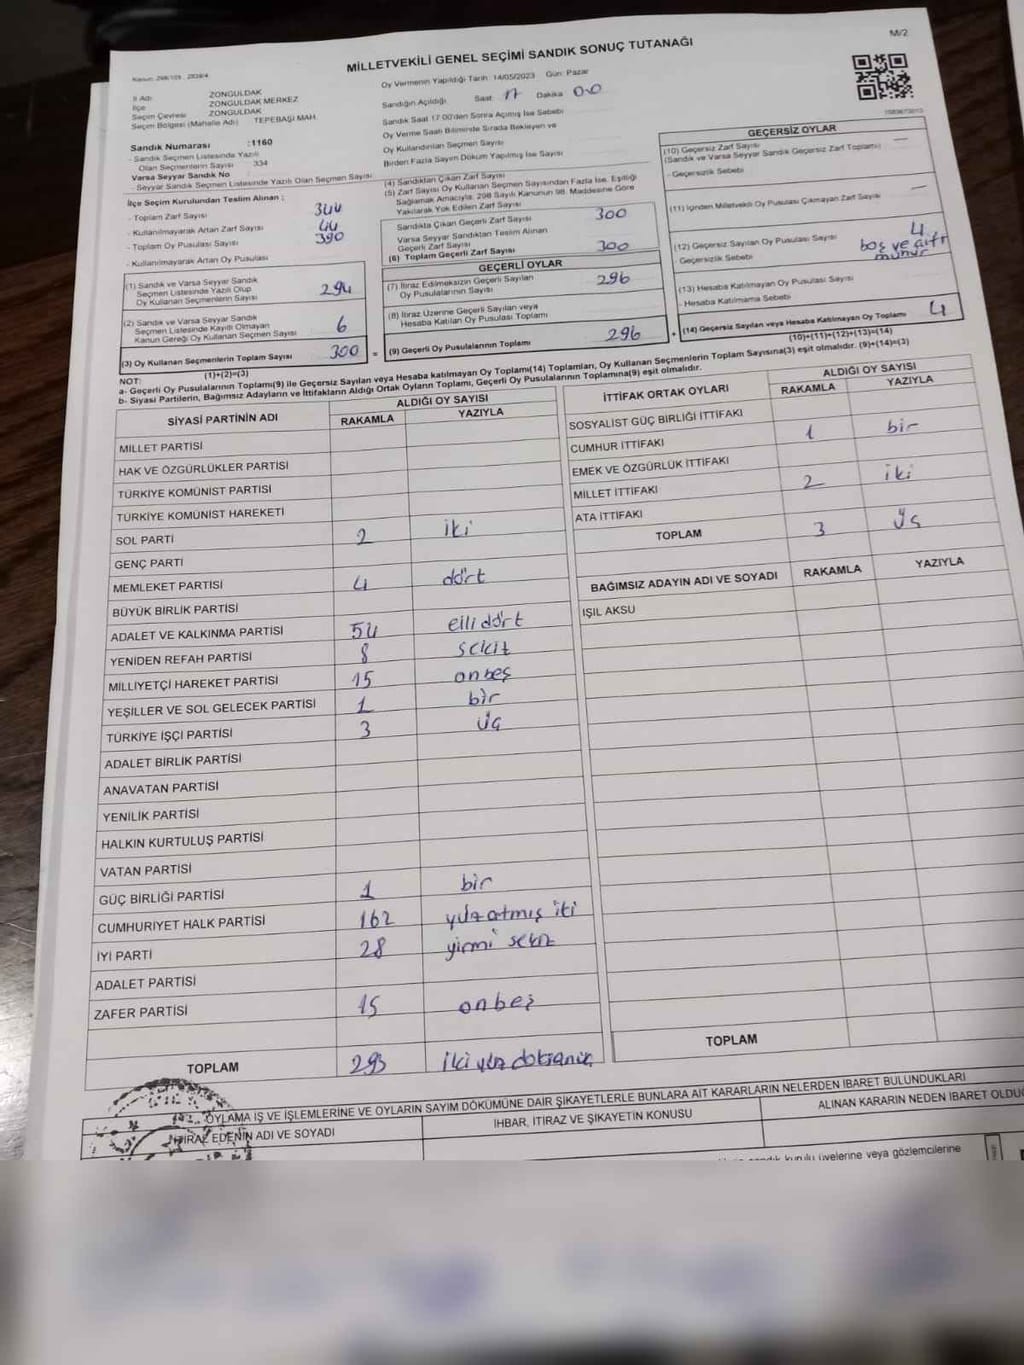 M/2
MİLLETVEKİLİ GENEL SEÇİMİ SANDIK SONUÇ TUTANAĞI
Oy Vermenin Yapıldığı Tarih: 14/05/2023 Gün: Pazar
İl Adı ZONGULDAK
İlçe ZONGULDAK MERKEZ
Seçim Çevresi ZONGULDAK
Seçim Bölgesi (Mahalle Adı) TEPEBAŞI MAH.
Sandık Numarası :1160
- Sandık Seçmen Listesinde Yazılı
Olan Seçmenlerin Sayısı 334
Varsa Seyyar Sandık No
- Seyyar Sandık Seçmen Listesinde Yazılı Olan Seçmen Sayısı
İlçe Seçim Kurulundan Teslim Alınan :
- Toplam Zarf Sayısı 344
- Kullanılmayarak Artan Zarf Sayısı 44
- Toplam Oy Pusulası Sayısı 390
- Kullanılmayarak Artan Oy Pusulası
(1) Sandık ve Varsa Seyyar Sandık
Seçmen Listesinde Yazılı Olup
Oy Kullanan Seçmenlerin Sayısı 294
(2) Sandık ve Varsa Seyyar Sandık
Seçmen Listesinde Kayıtlı Olmayan
Kanun Gereği Oy Kullanan Seçmen Sayısı 6
(3) Oy Kullanan Seçmenlerin Toplam Sayısı 300 =
(1)+(2)=(3)
Sandığın Açıldığı Saat 17 Dakika 00
Sandık Saat 17:00'den Sonra Açılmış İse Sebebi
Oy Verme Saati Bitiminde Sırada Bekleyen ve
Oy Kullandırılan Seçmen Sayısı
Birden Fazla Sayım Döküm Yapılmış İse Sayısı
(4) Sandıktan Çıkan Zarf Sayısı
(5) Zarf Sayısı Oy Kullanan Seçmen Sayısından Fazla İse, Eşitliği
Sağlamak Amacıyla; 298 Sayılı Kanunun 98. Maddesine Göre
Yakılarak Yok Edilen Zarf Sayısı
Sandıkta Çıkan Geçerli Zarf Sayısı 300
Varsa Seyyar Sandıktan Teslim Alınan
Geçerli Zarf Sayısı
(6) Toplam Geçerli Zarf Sayısı 300
GEÇERLİ OYLAR
(7) İtiraz Edilmeksizin Geçerli Sayılan
Oy Pusulalarının Sayısı 296
(8) İtiraz Üzerine Geçerli Sayılan veya
Hesaba Katılan Oy Pusulası Toplamı
(9) Geçerli Oy Pusulalarının Toplamı 296 +
GEÇERSİZ OYLAR
(10) Geçersiz Zarf Sayısı —
(Sandık ve Varsa Seyyar Sandık Geçersiz Zarf Toplamı)
- Geçersizlik Sebebi
(11) İçinden Milletvekili Oy Pusulası Çıkmayan Zarf Sayısı —
(12) Geçersiz Sayılan Oy Pusulası Sayısı 4
Geçersizlik Sebebi boş ve çift
mühür
(13) Hesaba Katılmayan Oy Pusulası Sayısı
- Hesaba Katılmama Sebebi
(14) Geçersiz Sayılan veya Hesaba Katılmayan Oy Toplamı 4
(10)+(11)+(12)+(13)=(14)
NOT:
a- Geçerli Oy Pusulalarının Toplamı(9) ile Geçersiz Sayılan veya Hesaba katılmayan Oy Toplamı(14) Toplamları, Oy Kullanan Seçmenlerin Toplam Sayısına(3) eşit olmalıdır. (9)+(14)=(3)
b- Siyasi Partilerin, Bağımsız Adayların ve İttifakların Aldığı Ortak Oyların Toplamı, Geçerli Oy Pusulalarının Toplamına(9) eşit olmalıdır.
SİYASİ PARTİNİN ADI ALDIĞI OY SAYISI
RAKAMLA YAZIYLA
MİLLET PARTİSİ
HAK VE ÖZGÜRLÜKLER PARTİSİ
TÜRKİYE KOMÜNİST PARTİSİ
TÜRKİYE KOMÜNİST HAREKETİ
SOL PARTİ 2 iki
GENÇ PARTİ
MEMLEKET PARTİSİ 4 dört
BÜYÜK BİRLİK PARTİSİ
ADALET VE KALKINMA PARTİSİ 54 ellidört
YENİDEN REFAH PARTİSİ 8 sekiz
MİLLİYETÇİ HAREKET PARTİSİ 15 onbeş
YEŞİLLER VE SOL GELECEK PARTİSİ 1 bir
TÜRKİYE İŞÇİ PARTİSİ 3 üç
ADALET BİRLİK PARTİSİ
ANAVATAN PARTİSİ
YENİLİK PARTİSİ
HALKIN KURTULUŞ PARTİSİ
VATAN PARTİSİ
GÜÇ BİRLİĞİ PARTİSİ 1 bir
CUMHURİYET HALK PARTİSİ 162 yüzatmış iki
İYİ PARTİ 28 yirmi sekiz
ADALET PARTİSİ
ZAFER PARTİSİ 15 onbeş
TOPLAM 293 ikiyüz doksanüç
İTTİFAK ORTAK OYLARI ALDIĞI OY SAYISI
RAKAMLA YAZIYLA
SOSYALİST GÜÇ BİRLİĞİ İTTİFAKI
CUMHUR İTTİFAKI 1 bir
EMEK VE ÖZGÜRLÜK İTTİFAKI
MİLLET İTTİFAKI 2 iki
ATA İTTİFAKI
TOPLAM 3 üç
BAĞIMSIZ ADAYIN ADI VE SOYADI RAKAMLA YAZIYLA
IŞIL AKSU
TOPLAM
OYLAMA İŞ VE İŞLEMLERİNE VE OYLARIN SAYIM DÖKÜMÜNE DAİR ŞİKAYETLERLE BUNLARA AİT KARARLARIN NELERDEN İBARET BULUNDUKLARI
İTİRAZ EDENİN ADI VE SOYADI İHBAR, İTİRAZ VE ŞİKAYETİN KONUSU ALINAN KARARIN NEDEN İBARET OLDUĞ
sandık kurulu üyelerine veya gözlemcilerine